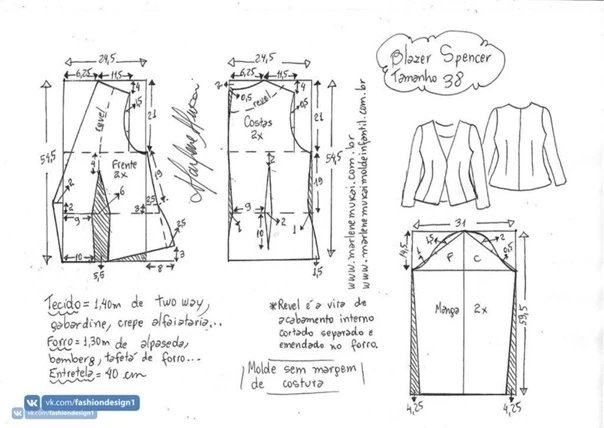 Blazer Spencer
Tamanho 38
24,5
6,25 11,5
4
1,5
revel
21
54,5
Frente
2x
4
6
19
2
2
9
3
2,5
10
2,5
3
5,5
8
Marlene Mukai
24,5
6,25 11,5
2
0,5
revel
4
1
Costas
2x
21
54,5
2
19
9
2
10
1
1
1,5
www.marlenemukai.com.br
www.marlenemukaimoldeinfantil.com.br
31
14,5
1,5
2
0,5
F
C
Manga 2x
59,5
4,25
4,25
Tecido = 1,40m de two way,
gabardine, crepe alfaiataria...
Forro = 1,30m de alpaseda,
bemberg, tafetá de forro...
Entretela = 40 cm
*Revel é a vira de
acabamento interno
cortado separado e
emendado no forro.
Molde sem margem
de costura
vk.com/fashiondesign1
vk.com/fashiondesign1